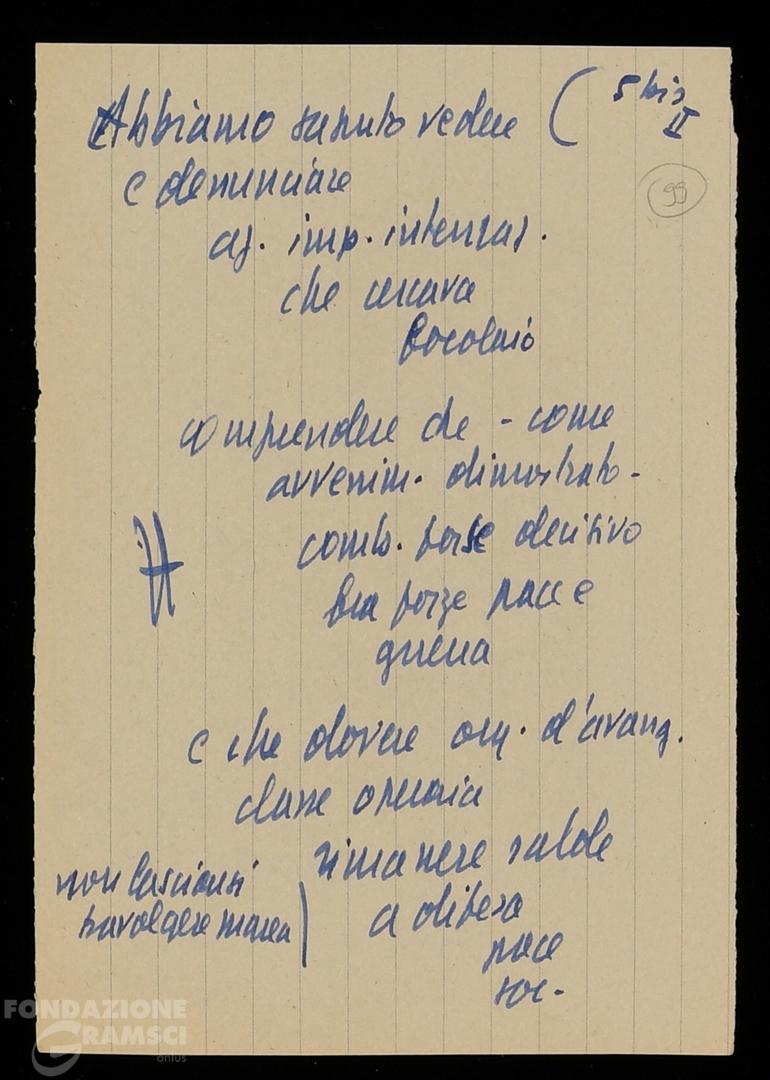 Abbiamo saputo vedere ( 5 bis
II
e denunciare
99
ag. imp. internaz.
che cercava
focolaio
comprendere che - come
avvenim. dimostrato -
comb. forse decisivo
fra forze pace e
guerra
e che dovere org. d'avang.
classe operaia
rimanere salde
non lasciarsi
travolgere marea
a difesa
pace
soc.
FONDAZIONE
GRAMSCI
onlus